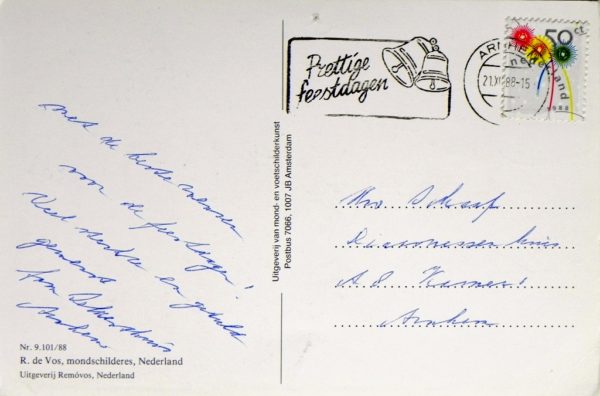 met de beste wensen
voor de feestdagen!
Veel sterkte en geduld
gewenst
Arnhem
Nr. 9.101/88
R. de Vos, mondschilderes, Nederland
Uitgeverij Remóvos, Nederland
Uitgeverij van mond- en voetschilderkunst
Postbus 7066, 1007 JB Amsterdam
Prettige
feestdagen
ARNHEM
21.XII.88-15
50 ct
nederland
1988
Mw Schaaf
Diaconessenhuis
A 8 Kamer
Arnhem